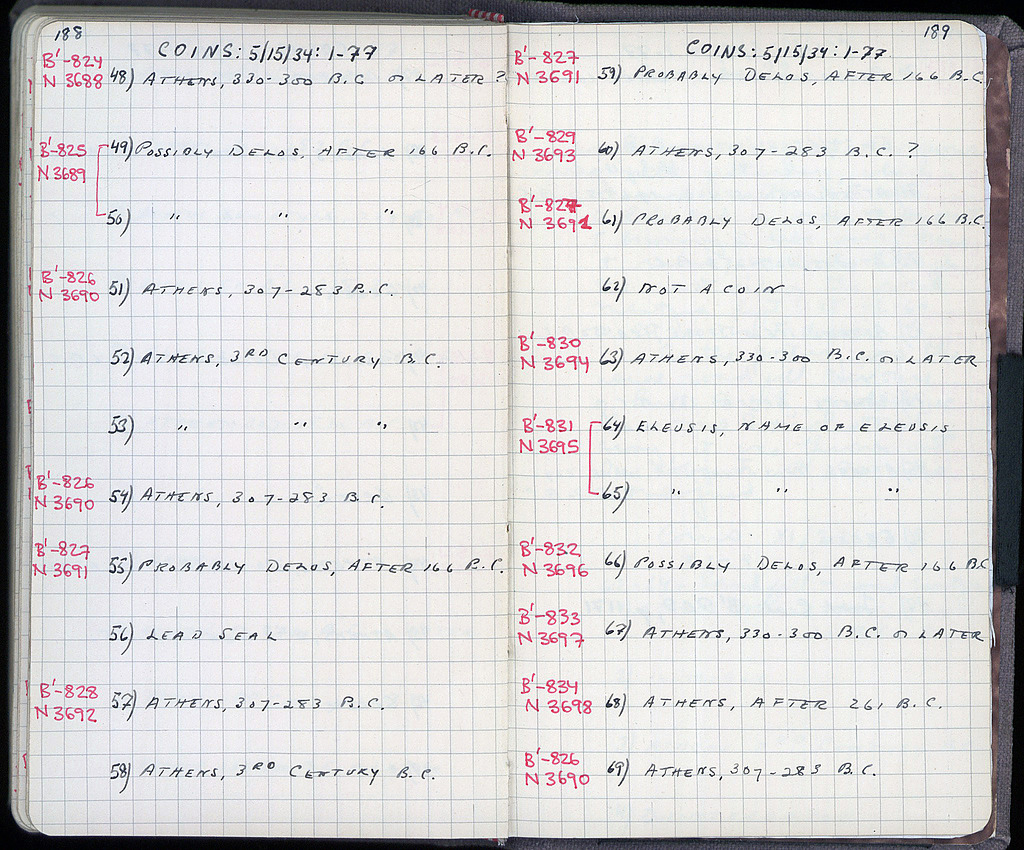 188
COINS: 5/15/34: 1-77
B'-824
N 3688 48) ATHENS, 330-300 B.C. OR LATER?
B'-825 49) POSSIBLY DELOS, AFTER 166 B.C.
N 3689
50) " " "
B'-826
N 3690 51) ATHENS, 307-283 B.C.
52) ATHENS, 3RD CENTURY B.C.
53) " " "
B'-826
N 3690 54) ATHENS, 307-283 B.C.
B'-827
N 3691 55) PROBABLY DELOS, AFTER 166 B.C.
56) LEAD SEAL
B'-828
N 3692 57) ATHENS, 307-283 B.C.
58) ATHENS, 3RD CENTURY B.C.
189
COINS: 5/15/34: 1-77
B'-827
N 3691 59) PROBABLY DELOS, AFTER 166 B.C.
B'-829
N 3693 60) ATHENS, 307-283 B.C.?
B'-827
N 3691 61) PROBABLY DELOS, AFTER 166 B.C.
62) NOT A COIN
B'-830
N 3694 63) ATHENS, 330-300 B.C. OR LATER
B'-831 64) ELEUSIS, NAME OF ELEUSIS
N 3695
65) " " "
B'-832
N 3696 66) POSSIBLY DELOS, AFTER 166 B.C.
B'-833
N 3697 67) ATHENS, 330-300 B.C. OR LATER
B'-834
N 3698 68) ATHENS, AFTER 261 B.C.
B'-826
N 3690 69) ATHENS, 307-283 B.C.